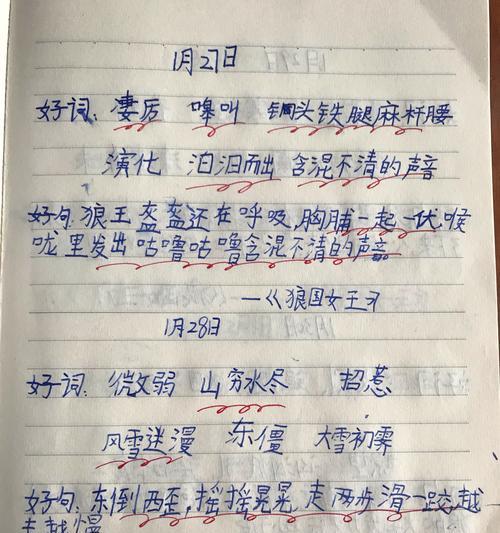 1月27日
好词：凄厉 嗥叫 铜头铁腿麻杆腰
演化 汩汩而出 含混不清的声音
好句：狼王盔盔还在呼吸，胸脯一起一伏，喉
咙里发出咕噜咕噜含混不清的声音。
—《狼国女王》
1月28日
好词：微弱 山穷水尽 招惹
风雪迷漫 东僵 大雪初霁
好句：东倒西歪，摇摇晃晃 走两步滑一跤越
走越慢